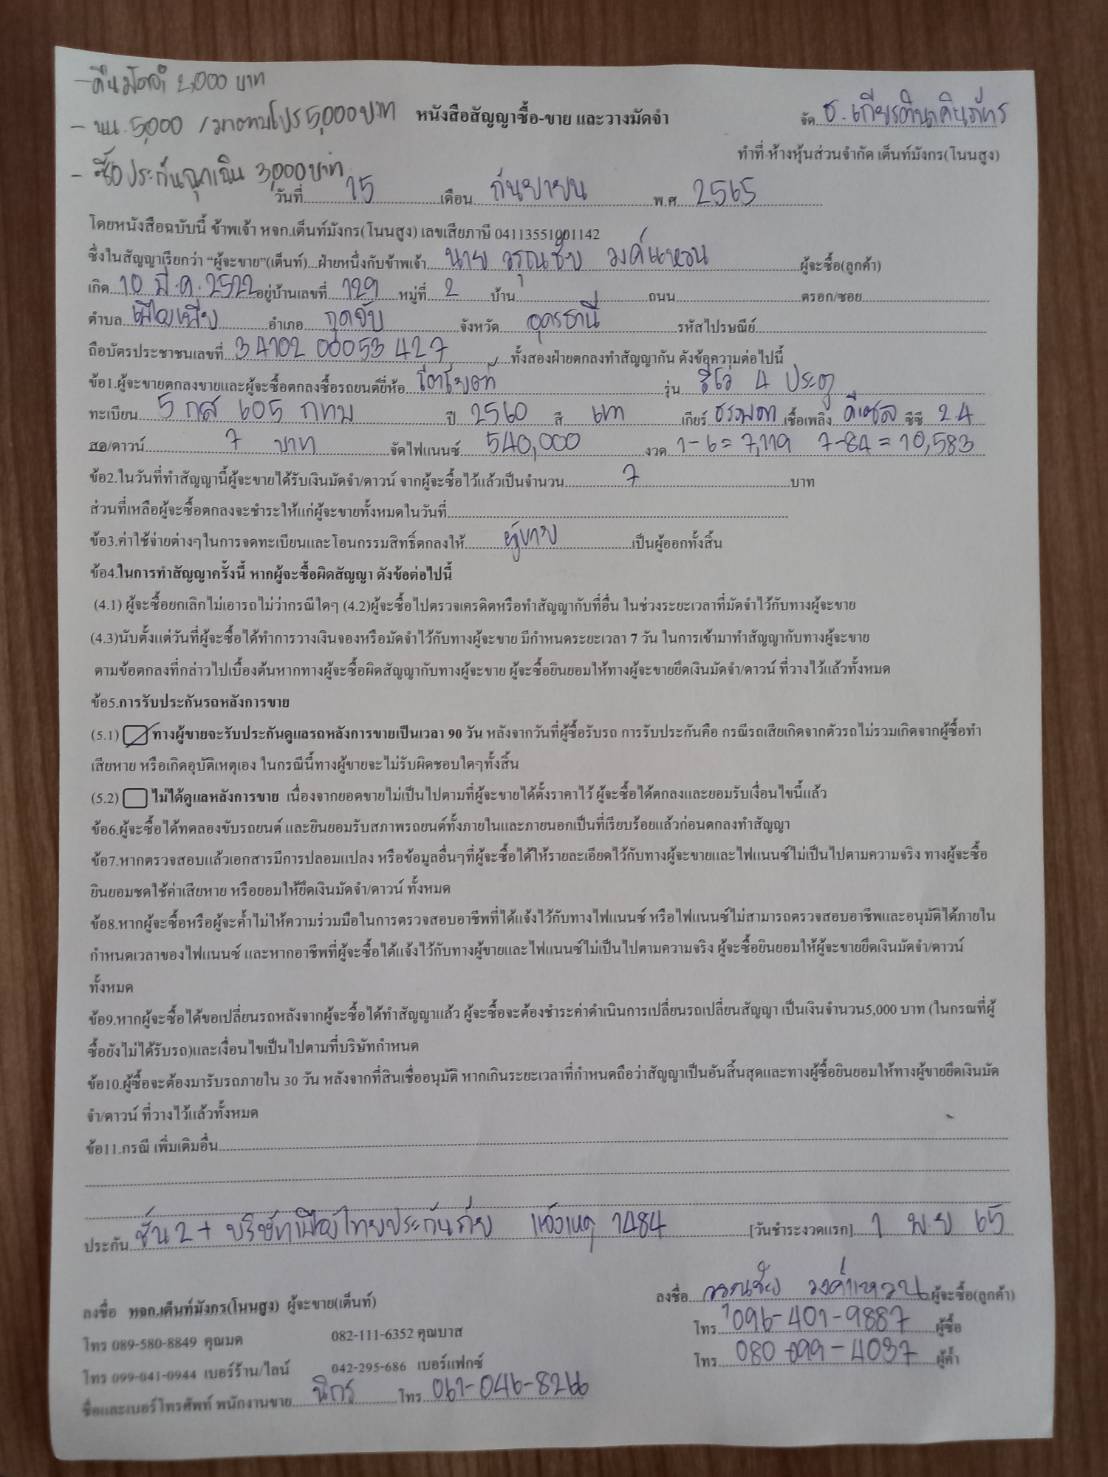 - คืนมัดจำ 2,000 บาท
- พน. 5,000 / มาตามโปร 5,000 บาท
หนังสือสัญญาซื้อ-ขาย และวางมัดจำ
จัด ธ.เกียรตินาคินภัทร
ทำที่ ห้างหุ้นส่วนจำกัด เต็นท์มังกร(โนนสูง)
- ซื้อประกันฉุกเฉิน 3,000 บาท
วันที่ 15 เดือน กันยายน พ.ศ 2565
โดยหนังสือฉบับนี้ ข้าพเจ้า หจก.เต็นท์มังกร(โนนสูง) เลขเสียภาษี 04113551001142
ซึ่งในสัญญาเรียกว่า "ผู้จะขาย"(เต็นท์)...ฝ่ายหนึ่งกับข้าพเจ้า นาย วรุณชัย วงค์แหวน ผู้จะซื้อ(ลูกค้า)
เกิด 10 มี.ค. 2522 อยู่บ้านเลขที่ 129 หมู่ที่ 2 บ้าน ถนน ตรอก/ซอย
ตำบล อำเภอ กุดจับ จังหวัด อุดรธานี รหัสไปรษณีย์
ถือบัตรประชาชนเลขที่ 34102 00053 427 ทั้งสองฝ่ายตกลงทำสัญญากัน ดังข้อความต่อไปนี้
ข้อ1.ผู้จะขายตกลงขายและผู้จะซื้อตกลงซื้อรถยนต์ยี่ห้อ โตโยต้า รุ่น รีโว่ 4 ประตู
ทะเบียน 5 กส 605 กทม ปี 2560 สี เทา เกียร์ ธรรมดา เชื้อเพลิง ดีเซล ซีซี 2.4
สด/ดาวน์ 7 บาท จัดไฟแนนซ์ 540,000 งวด 1-6 = 7,119 7-84 = 10,583
ข้อ2.ในวันที่ทำสัญญานี้ผู้จะขายได้รับเงินมัดจำ/ดาวน์ จากผู้จะซื้อไว้แล้วเป็นจำนวน 7 บาท
ส่วนที่เหลือผู้จะซื้อตกลงจะชำระให้แก่ผู้จะขายทั้งหมดในวันที่
ข้อ3.ค่าใช้จ่ายต่างๆในการจดทะเบียนและโอนกรรมสิทธิ์ตกลงให้ ผู้ขาย เป็นผู้ออกทั้งสิ้น
ข้อ4.ในการทำสัญญาครั้งนี้ หากผู้จะซื้อผิดสัญญา ดังข้อต่อไปนี้
(4.1) ผู้จะซื้อยกเลิกไม่เอารถไม่ว่ากรณีใดๆ (4.2)ผู้จะซื้อไปตรวจเครดิตหรือทำสัญญากับที่อื่น ในช่วงระยะเวลาที่มัดจำไว้กับทางผู้จะขาย
(4.3)นับตั้งแต่วันที่ผู้จะซื้อได้ทำการวางเงินจองหรือมัดจำไว้กับทางผู้จะขาย มีกำหนดระยะเวลา 7 วัน ในการเข้ามาทำสัญญากับทางผู้จะขาย
ตามข้อตกลงที่กล่าวไปเบื้องต้นหากทางผู้จะซื้อผิดสัญญากับทางผู้จะขาย ผู้จะซื้อยินยอมให้ทางผู้จะขายยึดเงินมัดจำ/ดาวน์ ที่วางไว้แล้วทั้งหมด
ข้อ5.การรับประกันรถหลังการขาย
(5.1) ทางผู้ขายจะรับประกันดูแลรถหลังการขายเป็นเวลา 90 วัน หลังจากวันที่ผู้ซื้อรับรถ การรับประกันคือ กรณีรถเสียเกิดจากตัวรถไม่รวมเกิดจากผู้ซื้อทำ
เสียหาย หรือเกิดอุบัติเหตุเอง ในกรณีนี้ทางผู้ขายจะไม่รับผิดชอบใดๆทั้งสิ้น
(5.2) ไม่ได้ดูแลหลังการขาย เนื่องจากยอดขายไม่เป็นไปตามที่ผู้จะขายได้ตั้งราคาไว้ ผู้จะซื้อได้ตกลงและยอมรับเงื่อนไขนี้แล้ว
ข้อ6.ผู้จะซื้อได้ทดลองขับรถยนต์ และยินยอมรับสภาพรถยนต์ทั้งภายในและภายนอกเป็นที่เรียบร้อยแล้วก่อนตกลงทำสัญญา
ข้อ7.หากตรวจสอบแล้วเอกสารมีการปลอมแปลง หรือข้อมูลอื่นๆที่ผู้จะซื้อได้ให้รายละเอียดไว้กับทางผู้จะขายและไฟแนนซ์ไม่เป็นไปตามความจริง ทางผู้จะซื้อ
ยินยอมชดใช้ค่าเสียหาย หรือยอมให้ยึดเงินมัดจำ/ดาวน์ ทั้งหมด
ข้อ8.หากผู้จะซื้อหรือผู้จะค้ำไม่ให้ความร่วมมือในการตรวจสอบอาชีพที่ได้แจ้งไว้กับทางไฟแนนซ์ หรือไฟแนนซ์ไม่สามารถตรวจสอบอาชีพและอนุมัติได้ภายใน
กำหนดเวลาของไฟแนนซ์ และหากอาชีพที่ผู้จะซื้อได้แจ้งไว้กับทางผู้ขายและไฟแนนซ์ไม่เป็นไปตามความจริง ผู้จะซื้อยินยอมให้ผู้จะขายยึดเงินมัดจำ/ดาวน์
ทั้งหมด
ข้อ9.หากผู้จะซื้อได้ขอเปลี่ยนรถหลังจากผู้จะซื้อได้ทำสัญญาแล้ว ผู้จะซื้อจะต้องชำระค่าดำเนินการเปลี่ยนรถเปลี่ยนสัญญา เป็นเงินจำนวน5,000 บาท (ในกรณที่ผู้
ซื้อยังไม่ได้รับรถ)และเงื่อนไขเป็นไปตามที่บริษัทกำหนด
ข้อ10.ผู้ซื้อจะต้องมารับรถภายใน 30 วัน หลังจากที่สินเชื่ออนุมัติ หากเกินระยะเวลาที่กำหนดถือว่าสัญญาเป็นอันสิ้นสุดและทางผู้ซื้อยินยอมให้ทางผู้ขายยึดเงินมัด
จำ/ดาวน์ ที่วางไว้แล้วทั้งหมด
ข้อ11.กรณี เพิ่มเติมอื่น
ประกัน ชั้น 2+ บริษัทเมืองไทยประกันภัย แจ้งเหตุ 1484 [วันชำระงวดแรก] 1 พ.ย 65
ลงชื่อ หจก.เต็นท์มังกร(โนนสูง) ผู้จะขาย(เต็นท์)
ลงชื่อ วรุณชัย วงค์แหวน ผู้จะซื้อ(ลูกค้า)
โทร 089-580-8849 คุณมด 082-111-6352 คุณบาส
โทร 096-401-9887 ผู้ซื้อ
โทร 099-041-0944 เบอร์ร้าน/ไลน์ 042-295-686 เบอร์แฟกซ์
โทร 080 099-4037 ผู้ค้ำ
ชื่อและเบอร์โทรศัพท์ พนักงานขาย นิกร โทร 061-046-8266